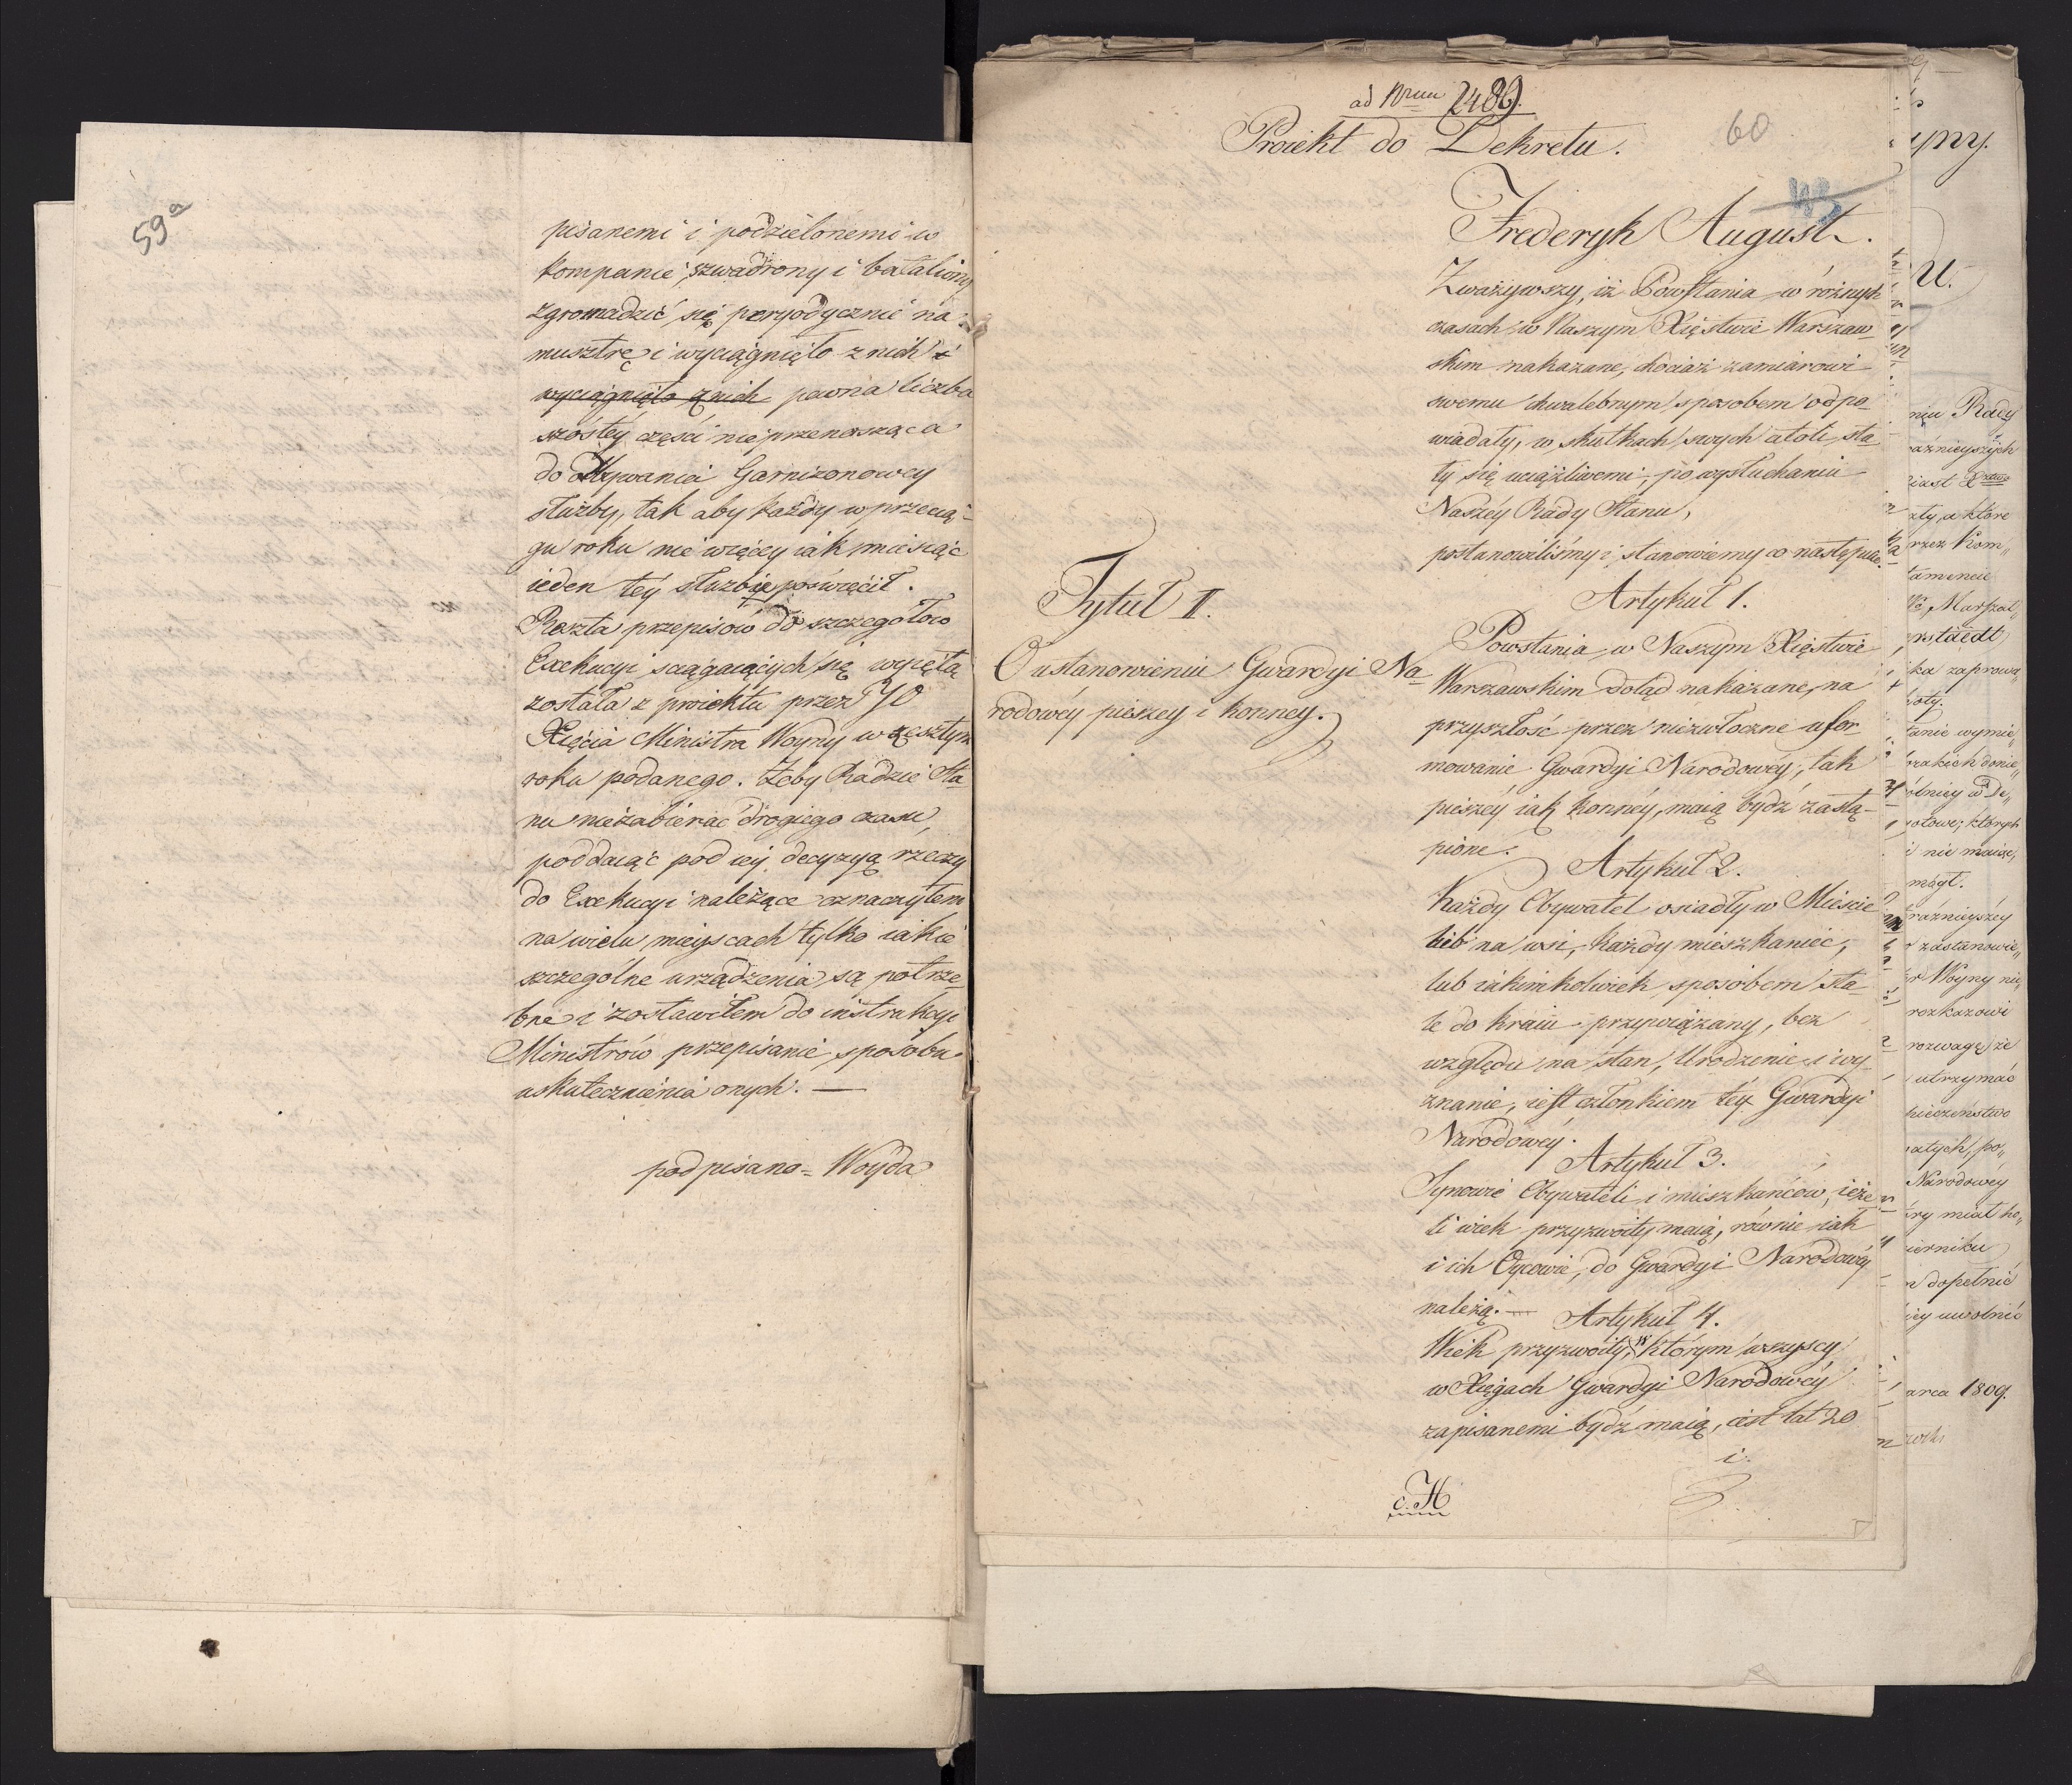 59a
pisanemi i podzielonemi w
kompanie, szwadrony i bataliony
zgromadzić się peryodycznie na
musztrę i wyciągnięto z nich i
wyciągnięto z nich pewna liczba
szóstéy części nieprzenosząca
do odbywania Garnizonowey
służby, tak aby każdy w przecią-
gu roku nie więcéy iak miesiąc
ieden téy służbie poświęcił.
Reszta przepisów do szczegółów
Exekucyi sciągaiących się wyięta
została z proiektu przez JO
Xięcia Ministra Woyny w zeszłym
roku podanego. Żeby Radzie Sta-
nu niezabierać drogiego czasu,
poddaiąc pod iéy decyzyą rzeczy
do Exekucyi należące oznaczyłem
na wielu mieyscach tylko iakie
szczególne urządzenia są potrze-
bne i zostawiłem do instrukcyi
Ministrów przepisanie sposobu
uskutecznienia onych. —
podpisano = Woyda
ad Nrum 2489.
60
Proiekt do Dekretu.
Frederyk August.
Zważywszy, iż Powstania w różnych
czasach w Naszym Xięstwie Warszaw-
skim nakazane, chociaż zamiarowi
swemu chwalebnym sposobem odpo-
wiadały, w skutkach swych atoli sta-
ły się uciążliwemi, po wysłuchaniu
Naszéy Rady Stanu,
postanowiliśmy i stanowiemy co następuie.
Tytuł II.
O ustanowieniu Gwardyi Na-
rodowéy pieszey i konney.
Artykuł 1.
Powstania w Naszym Xięstwie
Warszawskim dotąd nakazane, na
przyszłość przez niezwłoczne ufor-
mowanie Gwardyi Narodowéy, tak
pieszéy iak konnéy, maią bydź zastą-
pione.
Artykuł 2.
Każdy Obywatel osiadły w Mieście
lub na wsi, każdy mieszkaniec,
lub iakimkolwiek sposobem sta-
le do kraiu przywiązany, bez
względu na stan, Urodzenie i wy-
znanie, iest członkiem téy Gwardyi
Narodowéy.
Artykuł 3.
Synowie Obywateli i mieszkańców, ieże-
li wiek przyzwoity maią, równie iak
i ich Oycowie, do Gwardyi Narodowéy
należą. —
Artykuł 4.
Wiek przyzwoity, w którym wszyscy
w Xięgach Gwardyi Narodowéy
zapisanemi bydź maią, iest lat 20
i.
c. H
niu Rady
aźnieyszych
zły, a które
rzez Kom„
tamencie
Marszał„
rstaedt
ka zaprowa„
boty.
tanie wymie„
rakich donie„
ólniey w De„
otowe; których
i nie maiąc,
mógł.
raźnieyszéy
zastanowie„
r Woyny nie„
rozkazowi
rozwagę, że
utrzymać
pieczeństwo
ałych, po„
Narodowéy
ry miał ho„
ierniku
n dopełnić
iéy uwolnić
arca 1809.